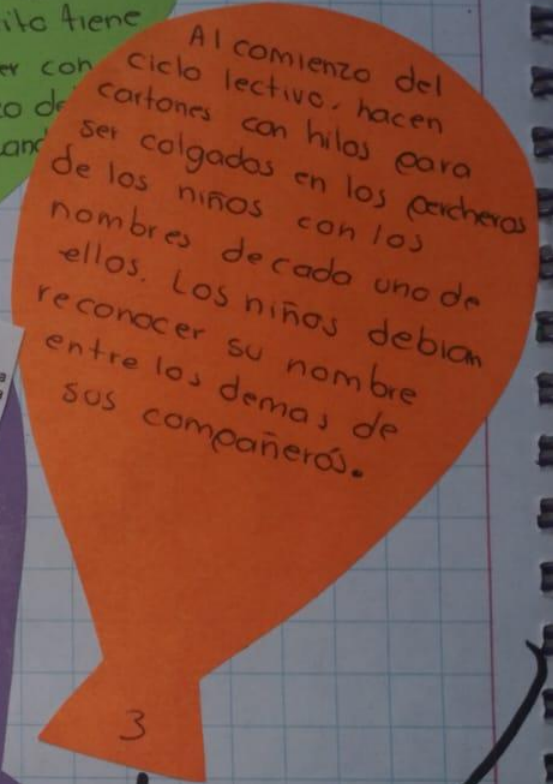 ito tiene
er con
zo de
and
Al comienzo del
ciclo lectivo, hacen
cartones con hilos para
ser colgados en los percheros
de los niños con los
nombres de cada uno de
ellos. Los niños debian
reconocer su nombre
entre los demas de
sus compañeros.
3